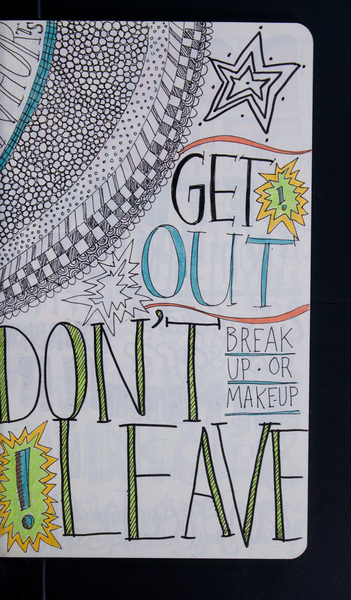 GET !
OUT
DON'T
BREAK
UP · OR
MAKEUP
! LEAVE